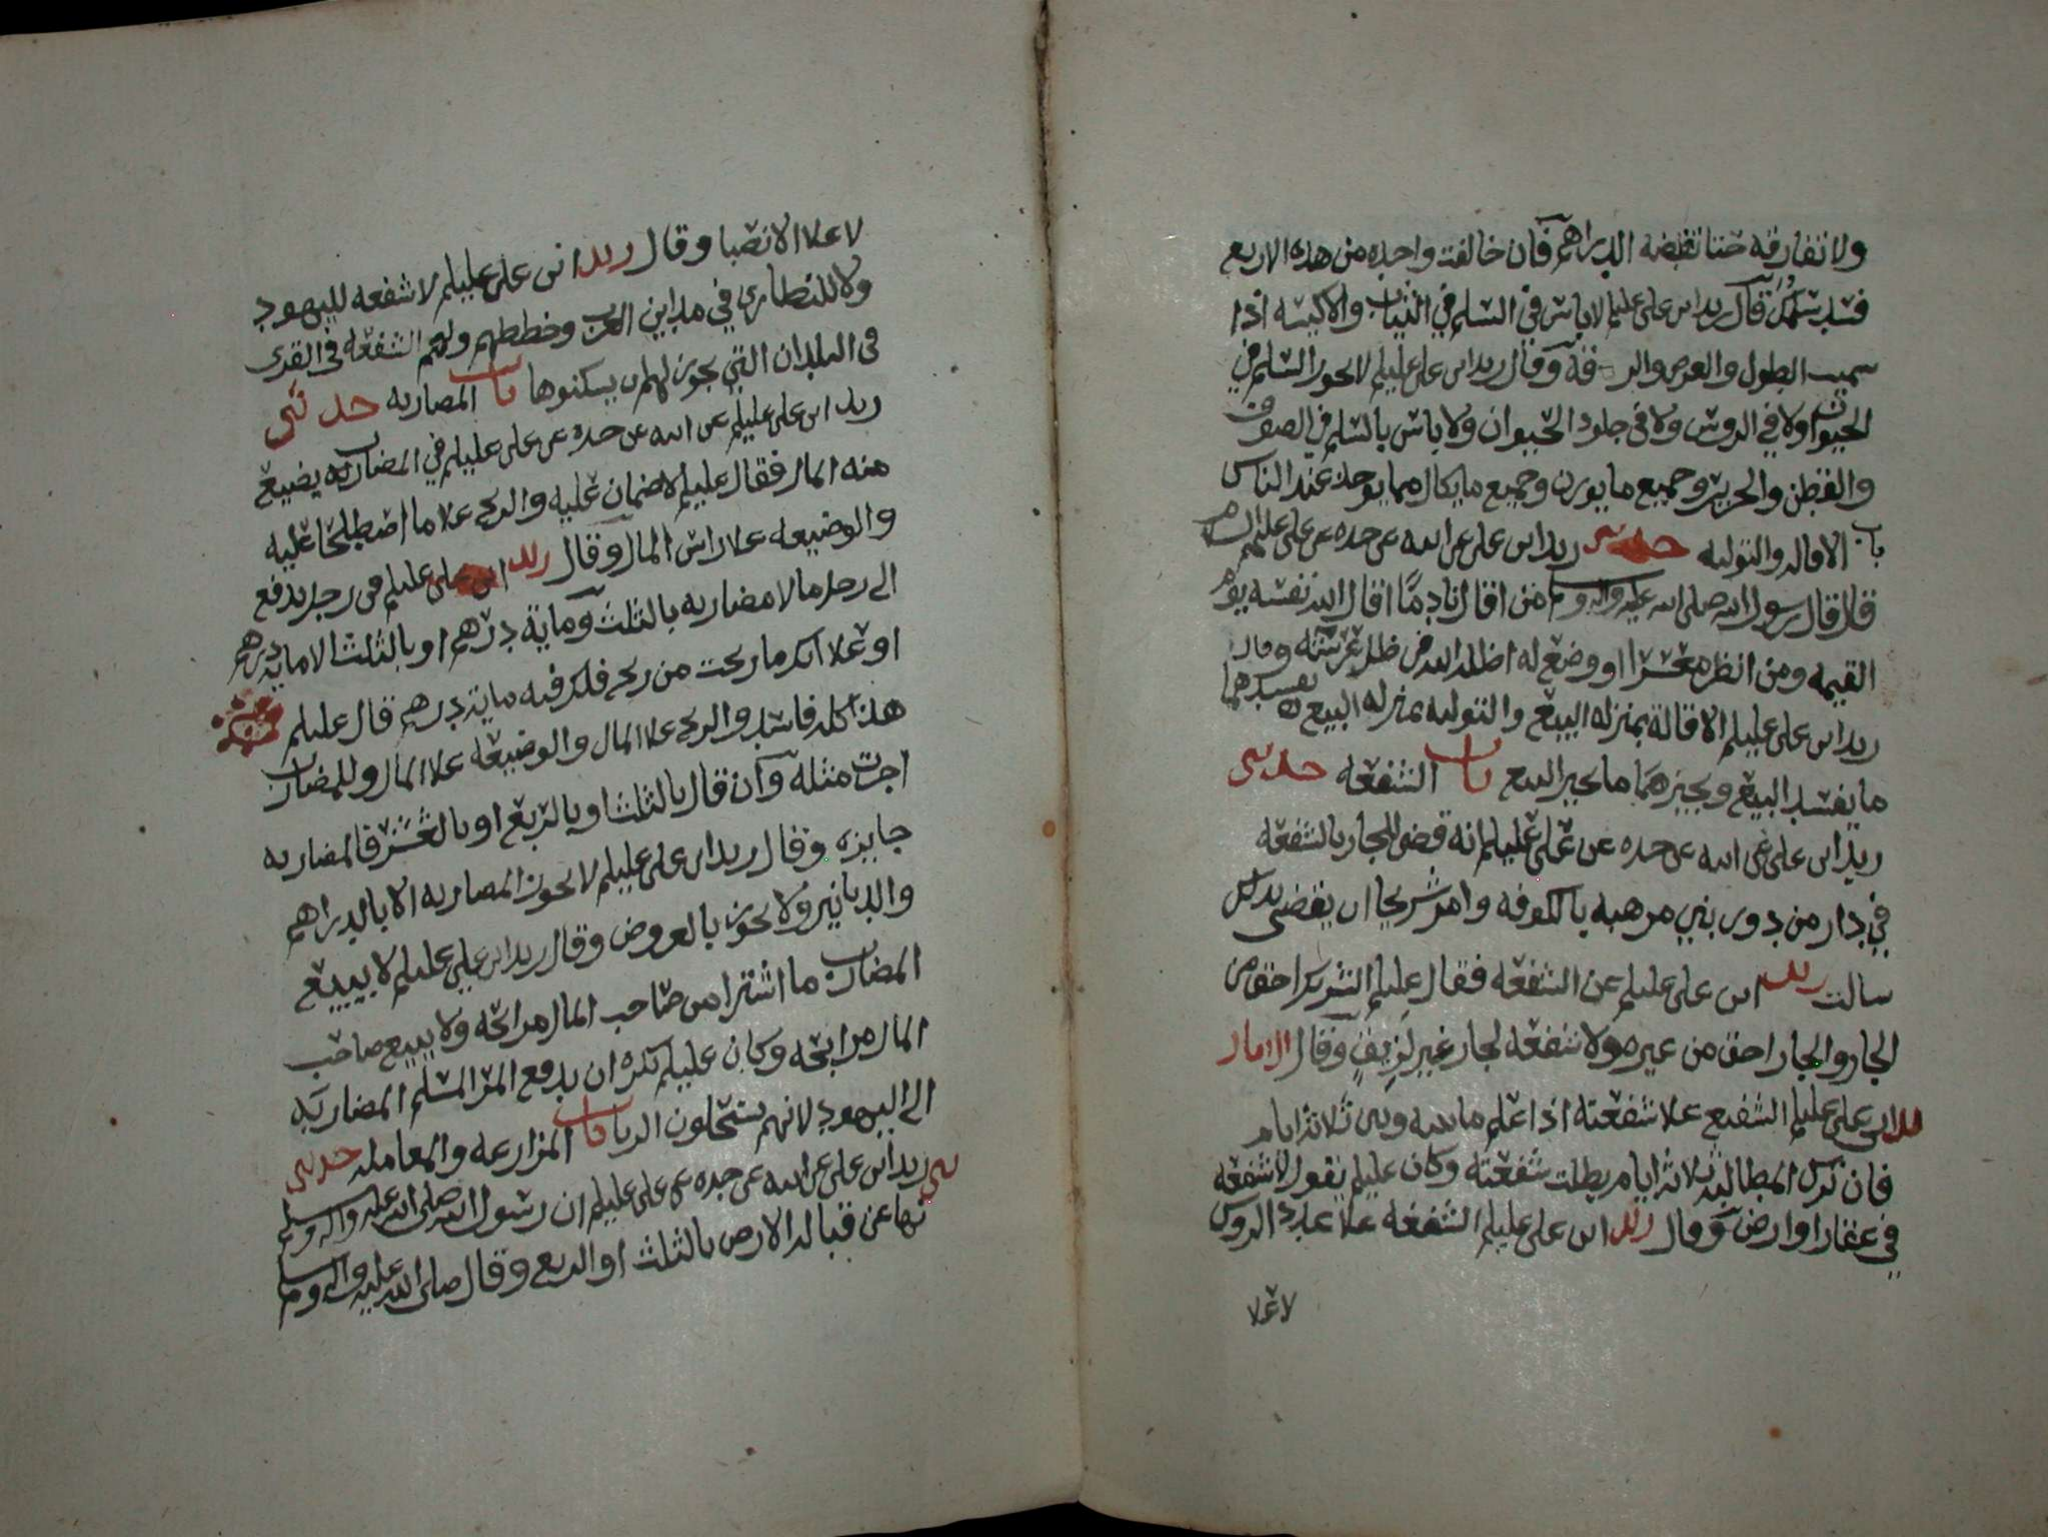 ولا تفارقه حتا تقبضه الدراهم فان خالفت واحده من هذه الاربع
فسد سلمك قال زيد ابن على عليلم لا باس في السلم في الثياب والاكيسه اذا
سميت الطول والعرض والرقعه وقال زيد ابن على عليلم لا يجوز السلم في
الحيوان ولا في الروس ولا في جلود الحيوان ولا باس بالسلم في الصوف
والقطن والحرير وجميع ما يوزن وجميع ما يكال مما يوجد عند الناس
باب الاقاله والتوليه حدثنى زيد ابن على عن ابيه عن جده عن على عليهم السلام
قال قال رسول الله صلى الله عليه واله وسلم من اقال نادمًا اقال الله نفسه يوم
القيمه ومن انظر معسرا او وضع له اظله الله في ظل عرشه وقال
زيد ابن على عليلم الاقالة بمنزله البيع والتوليه بمنزله البيع يفسدهما
ما يفسد البيع ويجيزهما ما يجيز البيع باب الشفعه حدثنى
زيد ابن على عن ابيه عن جده عن على عليلم انه قضى للجار بالشفعه
في دار من دور بني مرهبه بالكوفه وامر شريحا ان يقضى بذلك
سالت زيد ابن على عليلم عن الشفعه فقال عليلم الشريك احق من
الجار والجار احق من غيره ولا شفعه لجار غير لزيق وقال الامام
زيد ابن على عليلم الشفيع علا شفعته اذا علم ما بينه وبين ثلاثه ايام
فان ترك المطالبه ثلاثه ايام بطلت شفعته وكان عليلم يقول لا شفعه
في عقار او ارض وقال زيد ابن على عليلم الشفعه علا عدد الروس
لا علا
لا علا الانصبا وقال زيد ابن على عليلم لا شفعه لليهود
ولا للنصارى في مداين العرب وخططهم ولهم الشفعه في القرى
في البلدان التي يجوز لهم ان يسكنوها باب المضاربه حدثنى
زيد ابن على عليلم عن ابيه عن جده عن على عليلم في المضارب يضيع
منه المال فقال عليلم لا ضمان عليه والربح علا ما اصطلحا عليه
والوضيعه علا راس المال وقال زيد ابن على عليلم في رجل يدفع
الى رجل مالا مضاربه بالثلث وماية درهم او بالثلث الا مايه درهم
او علا انك ما ربحت من ربح فلك فيه ماية درهم قال عليلم
هذا كله فاسد والربح علا المال والوضيعه علا المال وللمضارب
اجرت مثله وان قال بالثلث او بالربع او بالعشر فالمضاربه
جايزه وقال زيد ابن على عليلم لا يجوز المضاربه الا بالدراهم
والدنانير ولا يجوز بالعروض وقال زيد ابن على عليلم لا يبيع
المضارب ما اشترا من صاحب المال مرابحه ولا يبيع صاحب
المال مرابحه وكان عليلم يكره ان يدفع المر المسلم المضاربه
الى اليهود لانهم يستحلون الربا باب المزارعه والمعامله حدثنى
زيد ابن على عن ابيه عن جده عن على عليلم ان رسول الله صلى الله عليه واله وسلم
نها عن قباله الارض بالثلث او الربع وقال صلى الله عليه واله وسلم